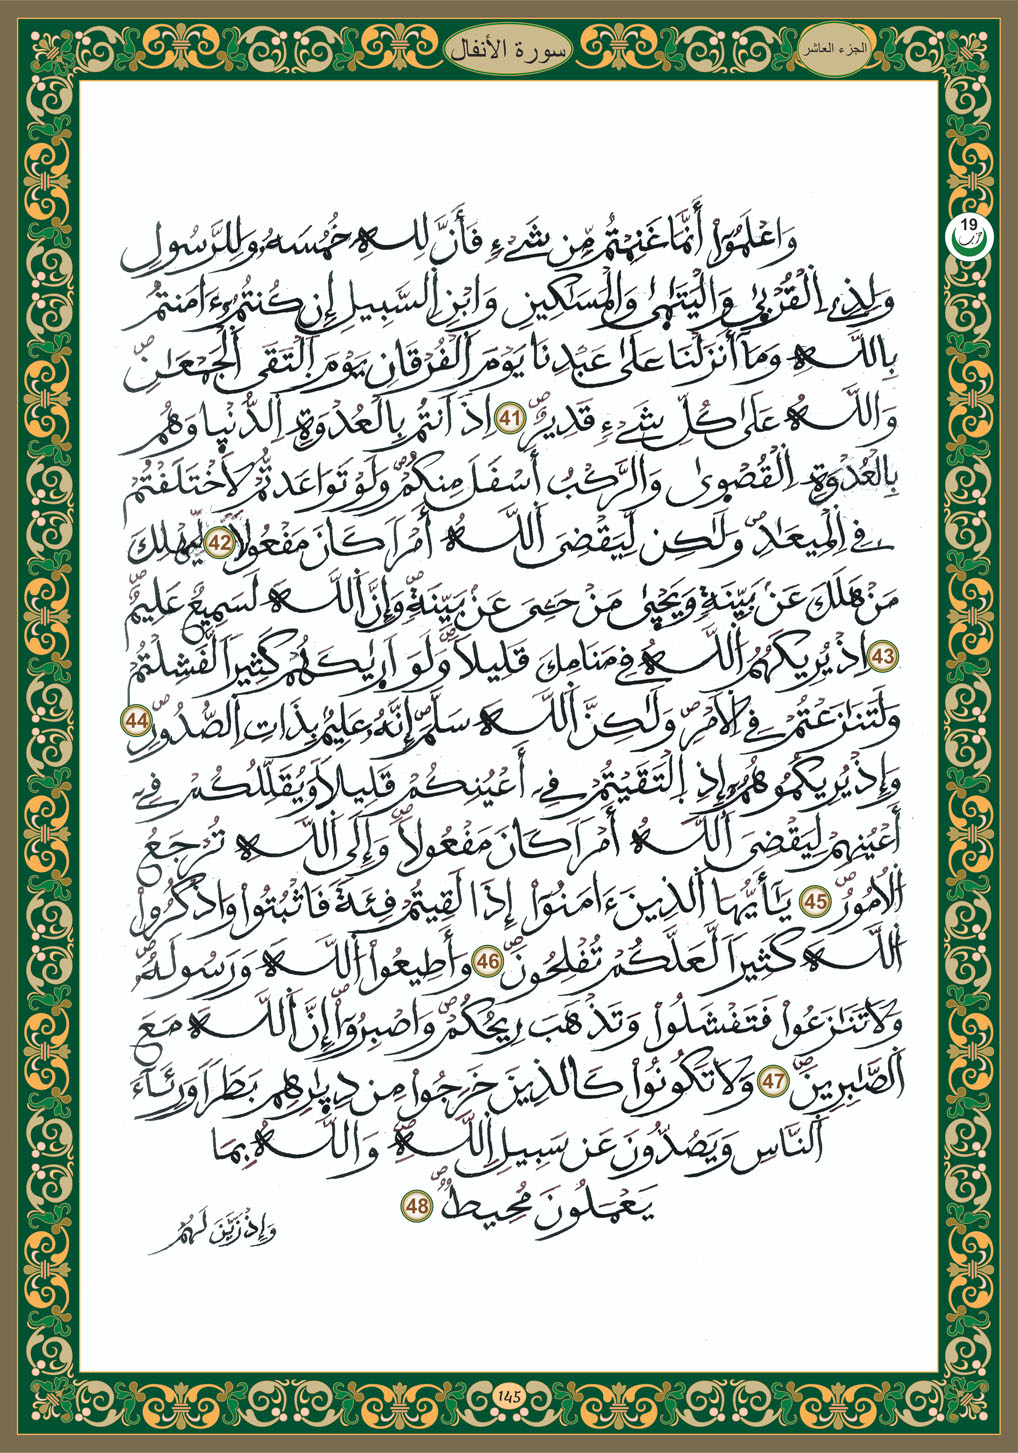 سورة الأنفال
الجزء العاشر
19
حزب
وَاعْلَمُوٓاْ أَنَّمَا غَنِمْتُم مِّن شَےْءٖ فَأَنَّ لِلهِ خُمُسَهُۥ وَلِلرَّسُولِ
وَلِذِے اِ۬لْقُرْب۪يٰ وَالْيَتَٰم۪يٰ وَالْمَسَٰكِينِ وَابْنِ اِ۬لسَّبِيلِ إِن كُنتُمُۥٓ ءَامَنتُم
بِاللَّهِ وَمَآ أَنزَلْنَا عَلَىٰ عَبْدِنَا يَوْمَ اَ۬لْفُرْقَانِ يَوْمَ اَ۪لْتَقَى اَ۬لْجَمْعَٰنِۖ
وَاللَّهُ عَلَىٰ كُلِّ شَےْءٖ قَدِيرٌۖ 41 اِذَ اَنتُم بِالْعُدْوَةِ اِ۬لدُّنْي۪ا وَهُم
بِالْعُدْوَةِ اِ۬لْقُصْو۪يٰ وَالرَّكْبُ أَسْفَلَ مِنكُمْۖ وَلَوْ تَوَاعَدتُّمْ لَاخْتَلَفْتُمْ
فِے اِ۬لْمِيعَٰدِۖ وَلَٰكِن لِّيَقْضِيَ اَ۬للَّهُ أَمْراٗ كَانَ مَفْعُولاٗ 42 لِّيَهْلِكَ
مَنْ هَلَكَ عَنۢ بَيِّنَةٖ وَيَحْيىٰ مَنْ حَيِيَ عَنۢ بَيِّنَةٖۖ وَإِنَّ اَ۬للَّهَ لَسَمِيعٌ عَلِيمٌۖ
43 اِذْ يُرِيكَهُمُ اُ۬للَّهُ فِے مَنَامِكَ قَلِيلاٗۖ وَلَوَ اَر۪يٰكَهُمْ كَثِيراٗ لَّفَشِلْتُمْ
وَلَتَنَٰزَعْتُمْ فِے اِ۬لَامْرِۖ وَلَٰكِنَّ اَ۬للَّهَ سَلَّمَۖ إِنَّهُۥ عَلِيمُۢ بِذَاتِ اِ۬لصُّدُورِۖ 44
وَإِذْ يُرِيكُمُوهُمُۥٓ إِذِ اِ۪لْتَقَيْتُمْ فِےٓ أَعْيُنِكُمْ قَلِيلاٗ وَيُقَلِّلُكُمْ فِےٓ
أَعْيُنِهِمْ لِيَقْضِيَ اَ۬للَّهُ أَمْراٗ كَانَ مَفْعُولاٗۖ وَإِلَى اَ۬للَّهِ تُرْجَعُ
اُ۬لُامُورُۖ 45 يَٰٓأَيُّهَا اَ۬لذِينَ ءَامَنُوٓاْ إِذَا لَقِيتُمْ فِئَةٗ فَاثْبُتُواْ وَاذْكُرُواْ
اُ۬للَّهَ كَثِيراٗ لَّعَلَّكُمْ تُفْلِحُونَۖ 46 وَأَطِيعُواْ اُ۬للَّهَ وَرَسُولَهُۥۖ
وَلَا تَنَٰزَعُواْ فَتَفْشَلُواْ وَتَذْهَبَ رِيحُكُمْۖ وَاصْبِرُوٓاْۖ إِنَّ اَ۬للَّهَ مَعَ
اَ۬لصَّٰبِرِينَۖ 47 وَلَا تَكُونُواْ كَالذِينَ خَرَجُواْ مِن دِيٰ۪رِهِم بَطَراٗ وَرِئَآءَ
اَ۬لنَّاسِ وَيَصُدُّونَ عَن سَبِيلِ اِ۬للَّهِۖ وَاللَّهُ بِمَا
يَعْمَلُونَ مُحِيطٌۖ 48
وَإِذْ زَيَّنَ لَهُمُ
145